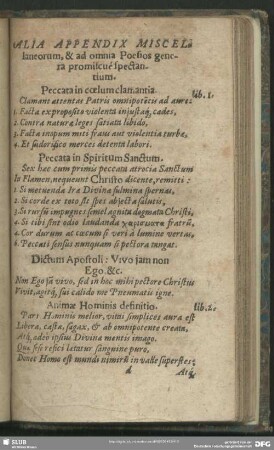 ALIA APPENDIX MISCEL-
laneorum, & ad omnia Poesios gene-
ra promiscuè spectan-
tium.
Peccata in cœlum clamantia.
lib. 1.
Clamant attentas Patris omnipotẽtis ad aures:
1. Facta ex proposito violenta injustaq́; cædes,
2. Contra naturæ leges satiata libido,
3. Facta inopum miti fraus aut violentia turbæ,
4. Et sudorifico merces detenta labori.
Peccata in Spiritum Sanctum.
Sex hæc cum primis peccata atrocia Sanctum
In Flamen, nequeunt Christo dicente, remitti:
1. Si motuenda Dei Divina fulmina spernas,
2. Si corde ex toto sit spes abjecta salutis,
3. Si rursũ impugnes semel agnita dogmata Christi,
4. Si tibi sint odio laudanda fratrũ,
5. Cor durum at cœcum si veri à lumine vertas,
6. Peccati sensus nunquam si pectora tangat.
Dictum Apostoli: Vivo jam non
Ego. &c.
Non Ego jã vivo, sed in hoc mihi pectore Christus
Vivit, agitq́; sui calido me Pneumatis igne.
Animæ Hominis definitio.
lib. 2.
Pars Hominis melior, vitæ simplices aura est
Libera, casta, sagax, & ab omnipotente creata,
Atq́; adeo ipsius Divinæ mentis imago.
Quæ sese refici lætatur sanguine puro,
Donec Homo est mundi nimirũ in valle superstes:
Atq́;
SLUB